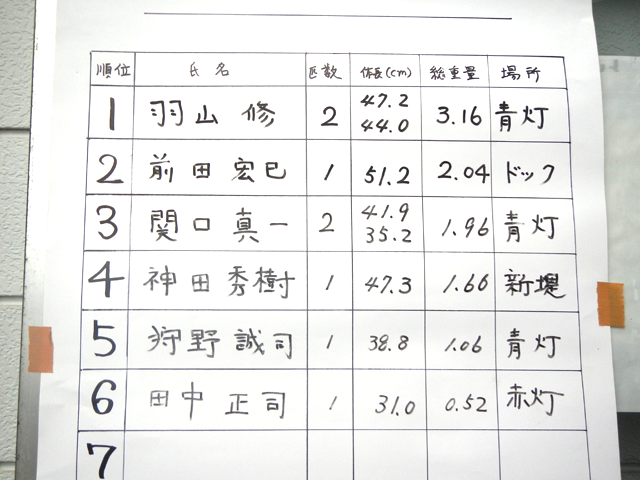 順位 氏名 匹数 体長(cm) 総重量 場所
1 羽山 修 2 47.2 44.0 3.16 青灯
2 前田 宏巳 1 51.2 2.04 ドック
3 関口 真一 2 41.9 35.2 1.96 青灯
4 神田 秀樹 1 47.3 1.66 新堤
5 狩野 誠司 1 38.8 1.06 青灯
6 田中 正司 1 31.0 0.52 赤灯
7